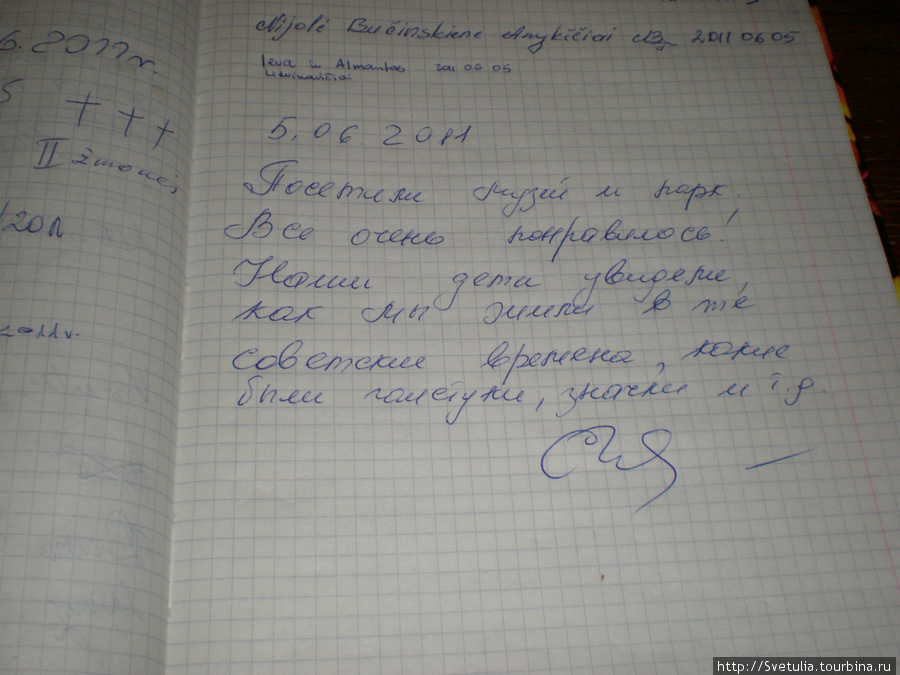 6.2011г.
5
+ + +
II žmonės
/2011
2011 v.
Nijolė Bučinskienė Anykščiai 2011 06 05
Ieva ir Almantas 2011 06 05
5.06.2011
Посетили музей и парк.
Все очень понравилось!
Наши дети увидели,
как мы жили в те
советские времена, какие
были галстуки, значки и т.д.
http://Svetulia.tourbina.ru